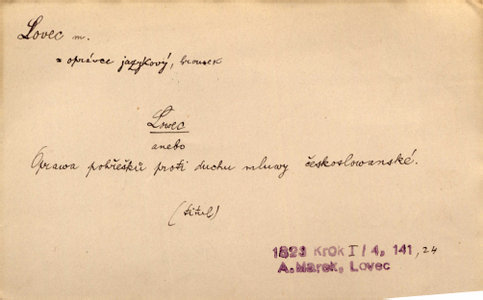 Lovec m.
= oprávce jazykový, brousek
Lovec
anebo
Oprawa pohřešků proti duchu mluwy českoslowanské.
(titul)
1823 Krok I/4, 141, 24
A. Marek, Lovec